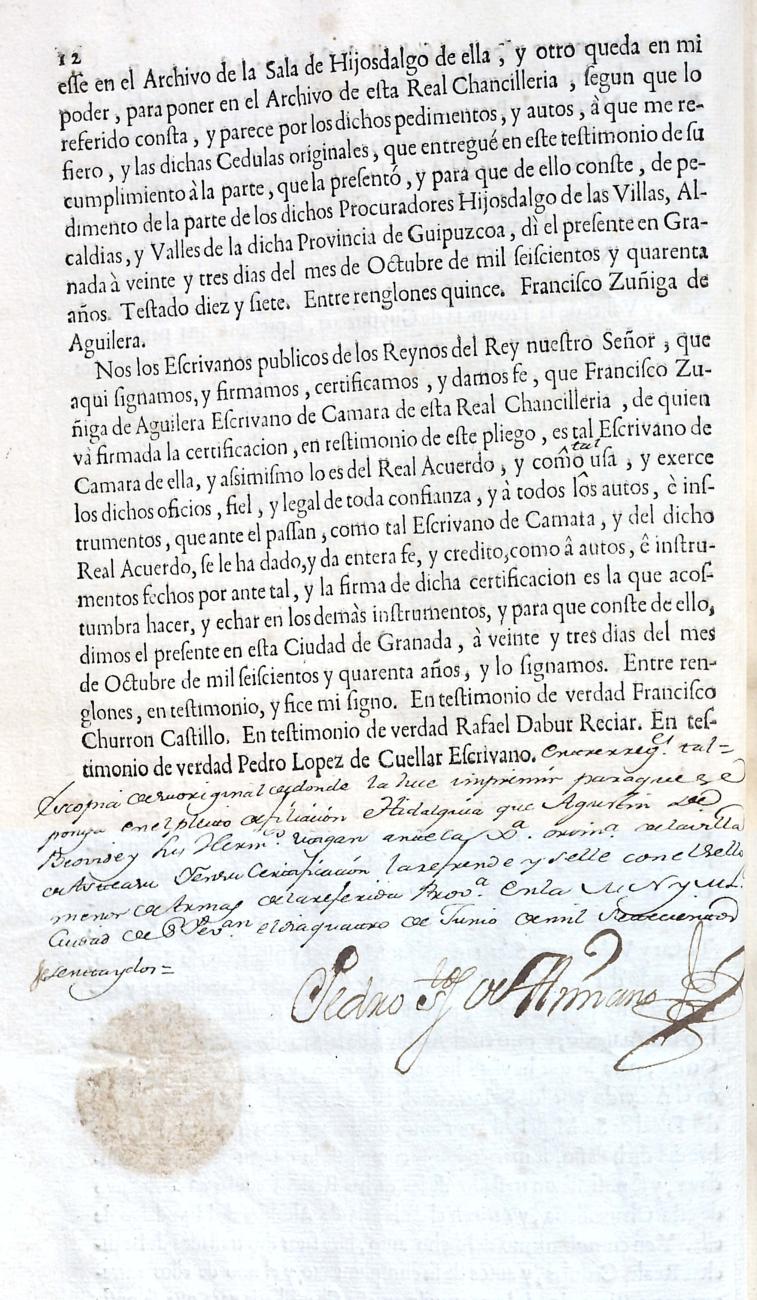 12
esse en el Archivo de la Sala de Hijosdalgo de ella, y otro queda en mi
poder, para poner en el Archivo de esta Real Chancilleria, segun que lo
referido consta, y parece por los dichos pedimentos, y autos, à que me re-
fiero, y las dichas Cedulas originales, que entregué en este testimonio de su
cumplimiento à la parte, que la presentó, y para que de ello conste, de pe-
dimento de la parte de los dichos Procuradores Hijosdalgo de las Villas, Al-
caldias, y Valles de la dicha Provincia de Guipuzcoa, dì el presente en Gra-
nada à veinte y tres dias del mes de Octubre de mil seiscientos y quarenta
años. Testado diez y siete. Entre renglones quince. Francisco Zuñiga de
Aguilera.
Nos los Escrivanos publicos de los Reynos del Rey nuestro Señor, que
aqui signamos, y firmamos, certificamos, y damos fe, que Francisco Zu-
ñiga de Aguilera Escrivano de Camara de esta Real Chancilleria, de quien
và firmada la certificacion, en restimonio de este pliego, es tal Escrivano de
tal
Camara de ella, y assimismo lo es del Real Acuerdo, y como usa, y exerce
los dichos oficios, fiel, y legal de toda confianza, y à todos los autos, è ins-
trumentos, que ante el passan, como tal Escrivano de Camata, y del dicho
Real Acuerdo, se le ha dado, y da entera fe, y credito, como â autos, ê instru-
mentos fechos por ante tal, y la firma de dicha certificacion es la que acos-
tumbra hacer, y echar en los demàs instrumentos, y para que conste de ello,
dimos el presente en esta Ciudad de Granada, à veinte y tres dias del mes
de Octubre de mil seiscientos y quarenta años, y lo signamos. Entre ren-
glones, en testimonio, y fice mi signo. En testimonio de verdad Francisco
Churron Castillo. En testimonio de verdad Rafael Dabur Reciar. En tes-
timonio de verdad Pedro Lopez de Cuellar Escrivano. entrerreg.s tal=
Es copia de su original de donde la hice imprimir para que se
ponga en el pleito de filiación e Hidalguia que Agustin de
y sus Herm.os en la villa
de Certificación la refrende y selle con el Sello
menor de Armas de la referida Prov.a en la M. N y M.
Ciudad de S.n Sev.an el dia quatro de Junio de mil Setecientos
sesenta y dos=
Pedro de